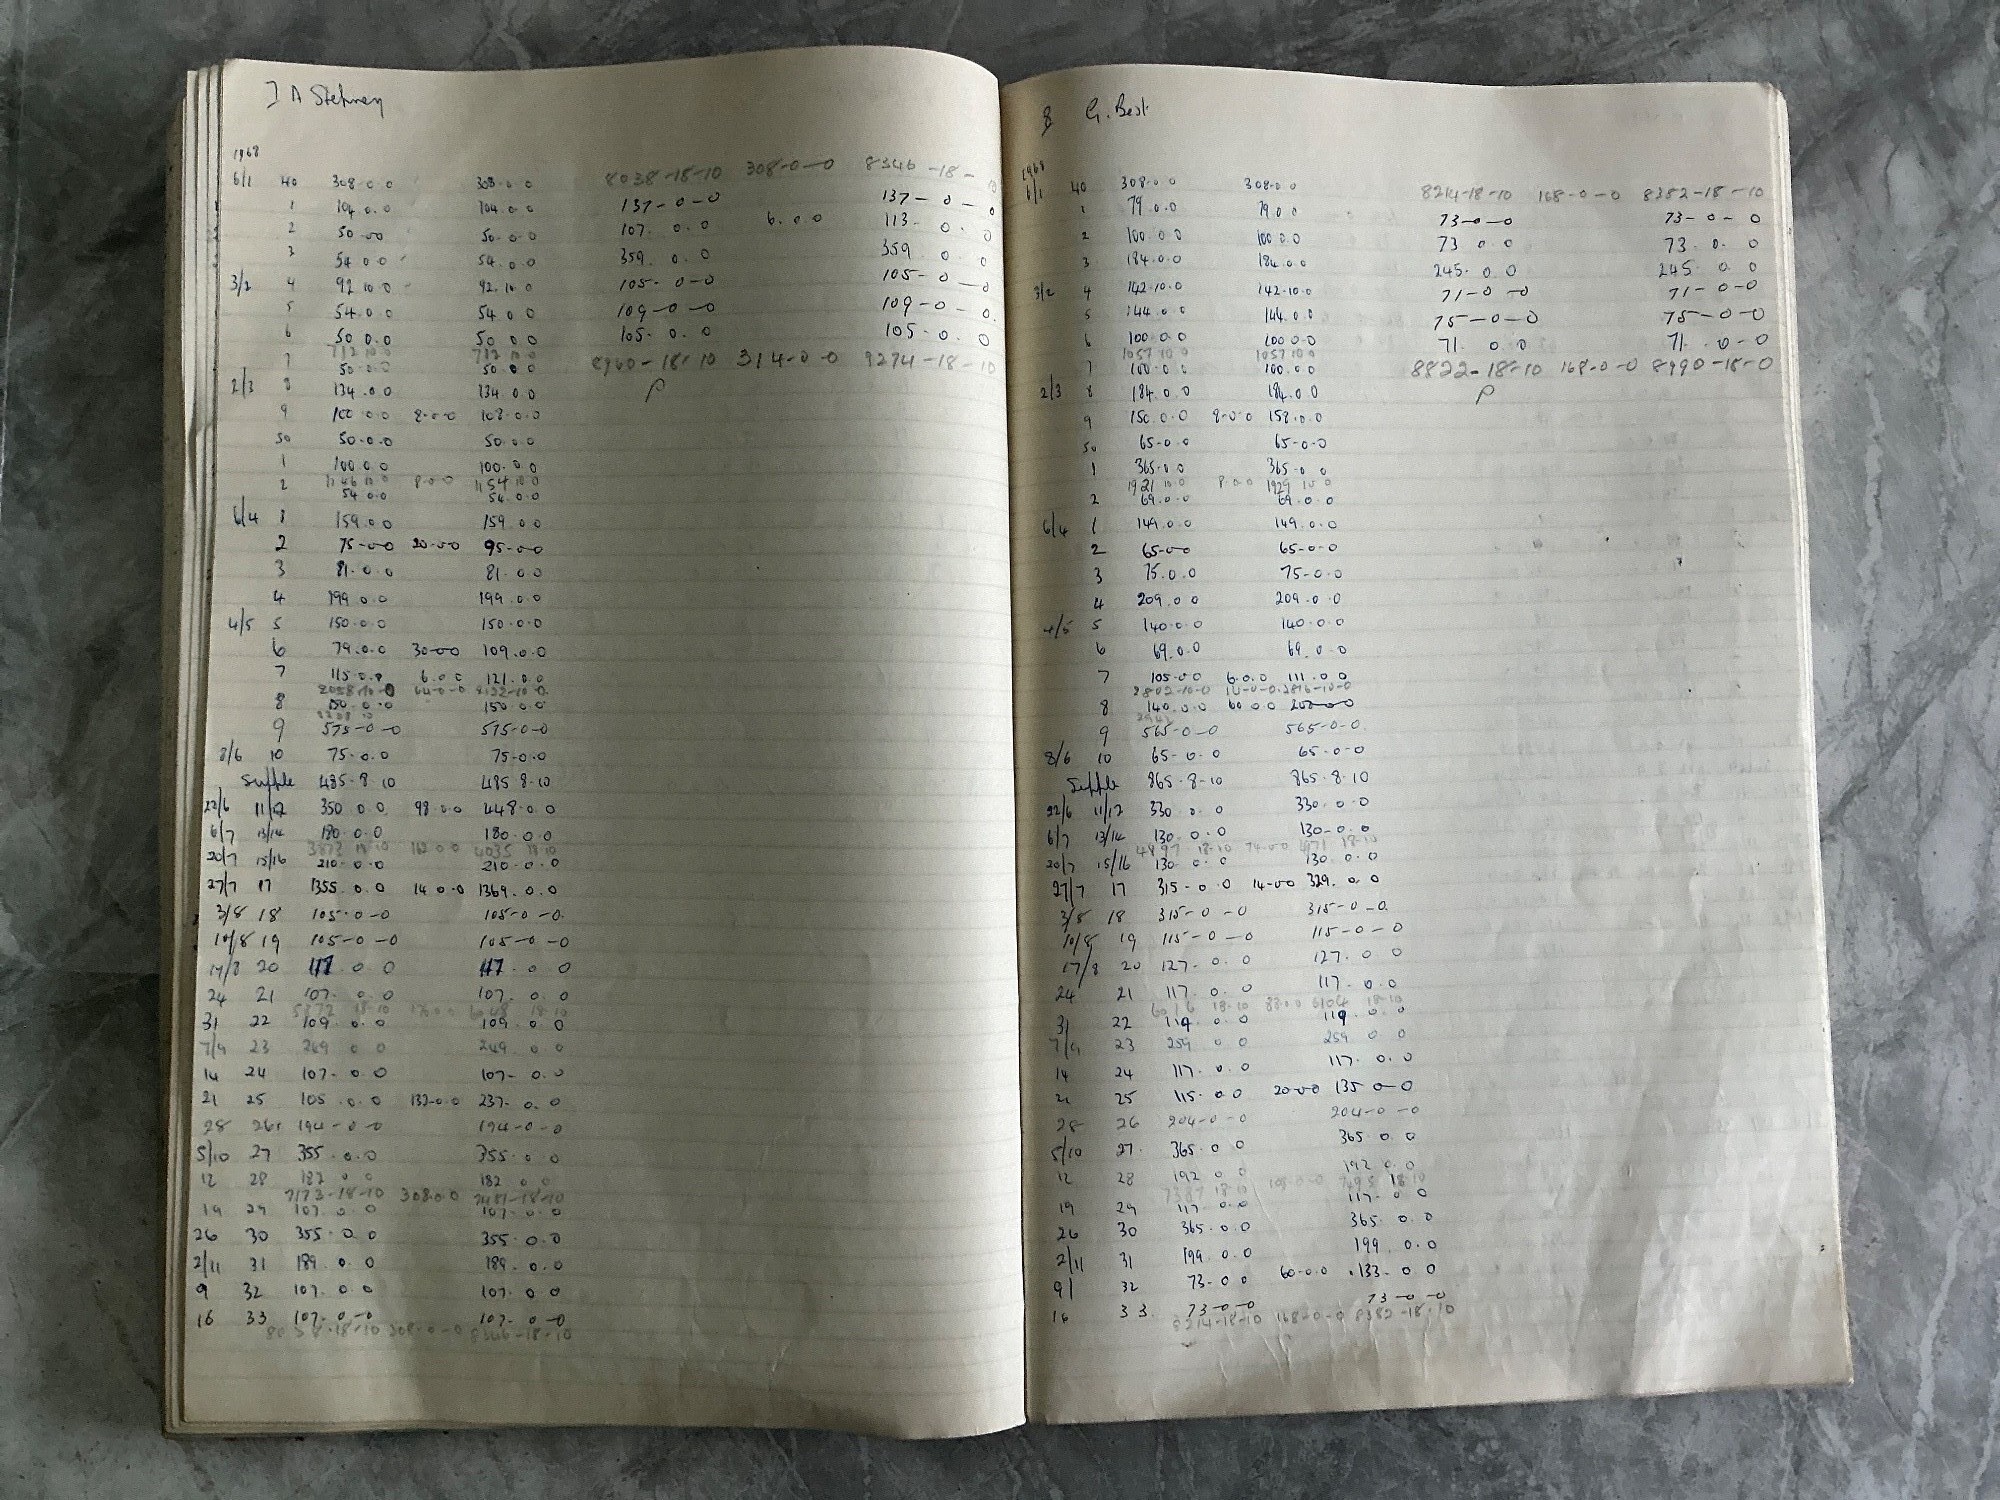 7 A Stepney
1968
6/1 40 308.0.0 308.0.0 8038-18-10 308-0-0 8346-18-10
1 104.0.0 104.0.0 137-0-0 137-0-0
2 50-00 50.0.0 107.0.0 6.0.0 113-0.0
3 54.0.0 54.0.0 359.0.0 359.0.0
3/2 4 92.10.0 92.10.0 105-0-0 105-0-0
5 54.0.0 54.0.0 109-0-0 109-0-0.
6 50.0.0 50.0.0 105.0.0 105.0.0
712.10.0 712.10.0
7 50.0.0 50.0.0 8960-18-10 314-0-0 9274-18-10
2/3 8 134.0.0 134.0.0 P
9 100.0.0 8-0-0 108.0.0
50 50.0.0 50.0.0
1 100.0.0 100.0.0
1146.10.0 8.0.0 1154.10.0
2 54.0.0 54.0.0
6/4 1 159.0.0 159.0.0
2 75-00 20-00 95-00
3 81.0.0 81.0.0
4 199.0.0 199.0.0
4/5 5 150.0.0 150.0.0
6 79.0.0 30-00 109.0.0
7 115.0.0 6.0.0 121.0.0
8 150.0.0 150.0.0
9 575-0-0 575-0-0
8/6 10 75-0.0 75-0.0
Supple 485-8-10 485 8.10
22/6 11/12 350.0.0 98.0.0 448.0.0
6/7 13/14 180.0.0 180.0.0
20/7 15/16 210.0.0 210.0.0
27/7 17 1355.0.0 14.0.0 1369.0.0
3/8 18 105.0-0 105-0-0
10/8 19 105-0-0 105-0-0
17/8 20 117.0.0 117.0.0
24 21 107.0.0 107.0.0
31 22 109.0.0 109.0.0
7/9 23 249.0.0 249.0.0
14 24 107-0.0 107-0.0
21 25 105.0.0 132-0.0 237.0.0
28 26 194-0-0 194-0-0
5/10 27 355.0.0 355.0.0
12 28 182.0.0 182.0.0
7173-18-10 308.0.0 7481-18-10
19 29 107.0.0 107.0.0
26 30 355.0.0 355.0.0
2/11 31 189.0.0 189.0.0
9 32 107.0.0 107.0.0
16 33 107.0-0 107.0-0
8038-18-10 308-0-0 8346-18-10
8 G. Best
1968
6/1 40 308.0.0 308.0.0 8214-18-10 168-0-0 8382-18-10
1 79.0.0 79.0.0 73-0-0 73-0-0
2 100.0.0 100.0.0 73.0.0 73.0.0
3 184.0.0 184.0.0 245.0.0 245.0.0
3/2 4 142-10.0 142-10.0 71-0-0 71-0-0
5 144.0.0 144.0.0 75-0-0 75-0-0
6 100.0.0 100.0.0 71.0.0 71.0-0
1057.10.0 1057.10.0
7 100.0.0 100.0.0 8822-18-10 168-0-0 8990-18-0
2/3 8 184.0.0 184.0.0 P
9 150.0.0 8-0-0 158.0.0
50 65-0.0 65-0-0
1 365.0.0 365.0.0
1921.10.0 8.0.0 1929.10.0
2 69.0.0 69.0.0
6/4 1 149.0.0 149.0.0
2 65-00 65-0-0
3 75.0.0 75-0.0
4 209.0.0 209.0.0
4/5 5 140.0.0 140.0.0
6 69.0.0 69.0.0
7 105-00 6.0.0 111.0.0
2802-10-0 14-0-0 2816-10-0
8 140.0.0 60.0.0 200-0-0
9 565-0-0 565-0-0
8/6 10 65-0.0 65-0-0
Supple 865-8-10 865.8.10
22/6 11/12 330.0.0 330.0.0
6/7 13/14 130.0.0 130-0.0
20/7 15/16 130.0.0 130.0.0
27/7 17 315-0.0 14-00 329.0.0
3/8 18 315-0-0 315-0-0.
10/8 19 115-0-0 115-0-0
17/8 20 127-0.0 127.0.0
24 21 117.0.0 117.0.0
6016 18-10 88.0.0 6104 18-10
31 22 119.0.0 119.0.0
7/9 23 259.0.0 259.0.0
14 24 117.0.0 117.0.0
21 25 115.0.0 20-00 135.0-0
28 26 204-0-0 204-0-0
5/10 27. 365.0.0 365.0.0
12 28 192.0.0 192.0.0
7387 18-10 108-0-0 7495 18-10
19 29 117.0.0 117.0.0
26 30 365.0.0 365.0.0
2/11 31 199.0.0 199.0.0
9/ 32 73-0.0 60-0.0 133-0.0
16 33. 73-0-0 73-0-0
8214-18-10 168-0-0 8382-18-10